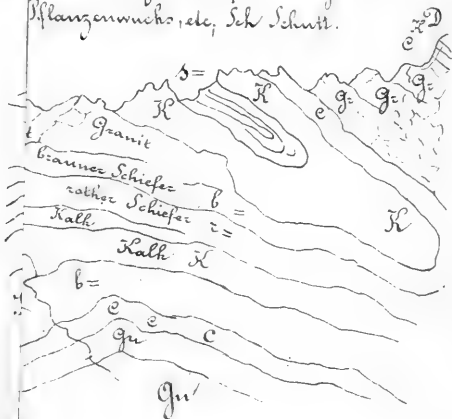 Pflanzenwuchs, etc; Sch Schutt.
e K D
s=
K K e G= G= G=
Granit
t
brauner Schiefer
rother Schiefer b =
Kalk r =
K
Kalk K
b=
e e c
Gn
Gn'